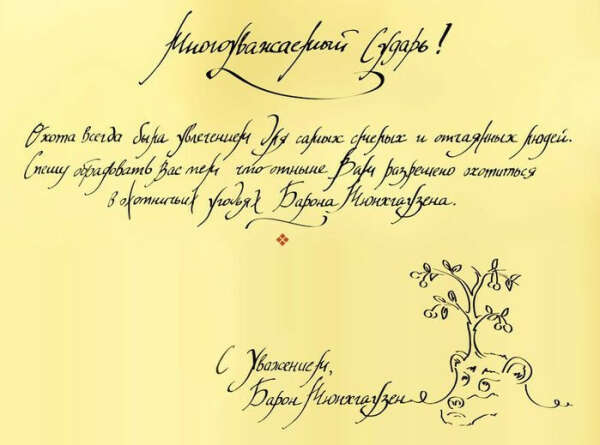 Многоуважаемый Сударь!
Охота всегда была увлечением для самых смелых и отчаянных людей.
Спешу обрадовать Вас тем что отныне Вам разрешено охотиться
в охотничьих угодьях Барона Мюнхгаузена.
С уважением,
Барон Мюнхгаузен